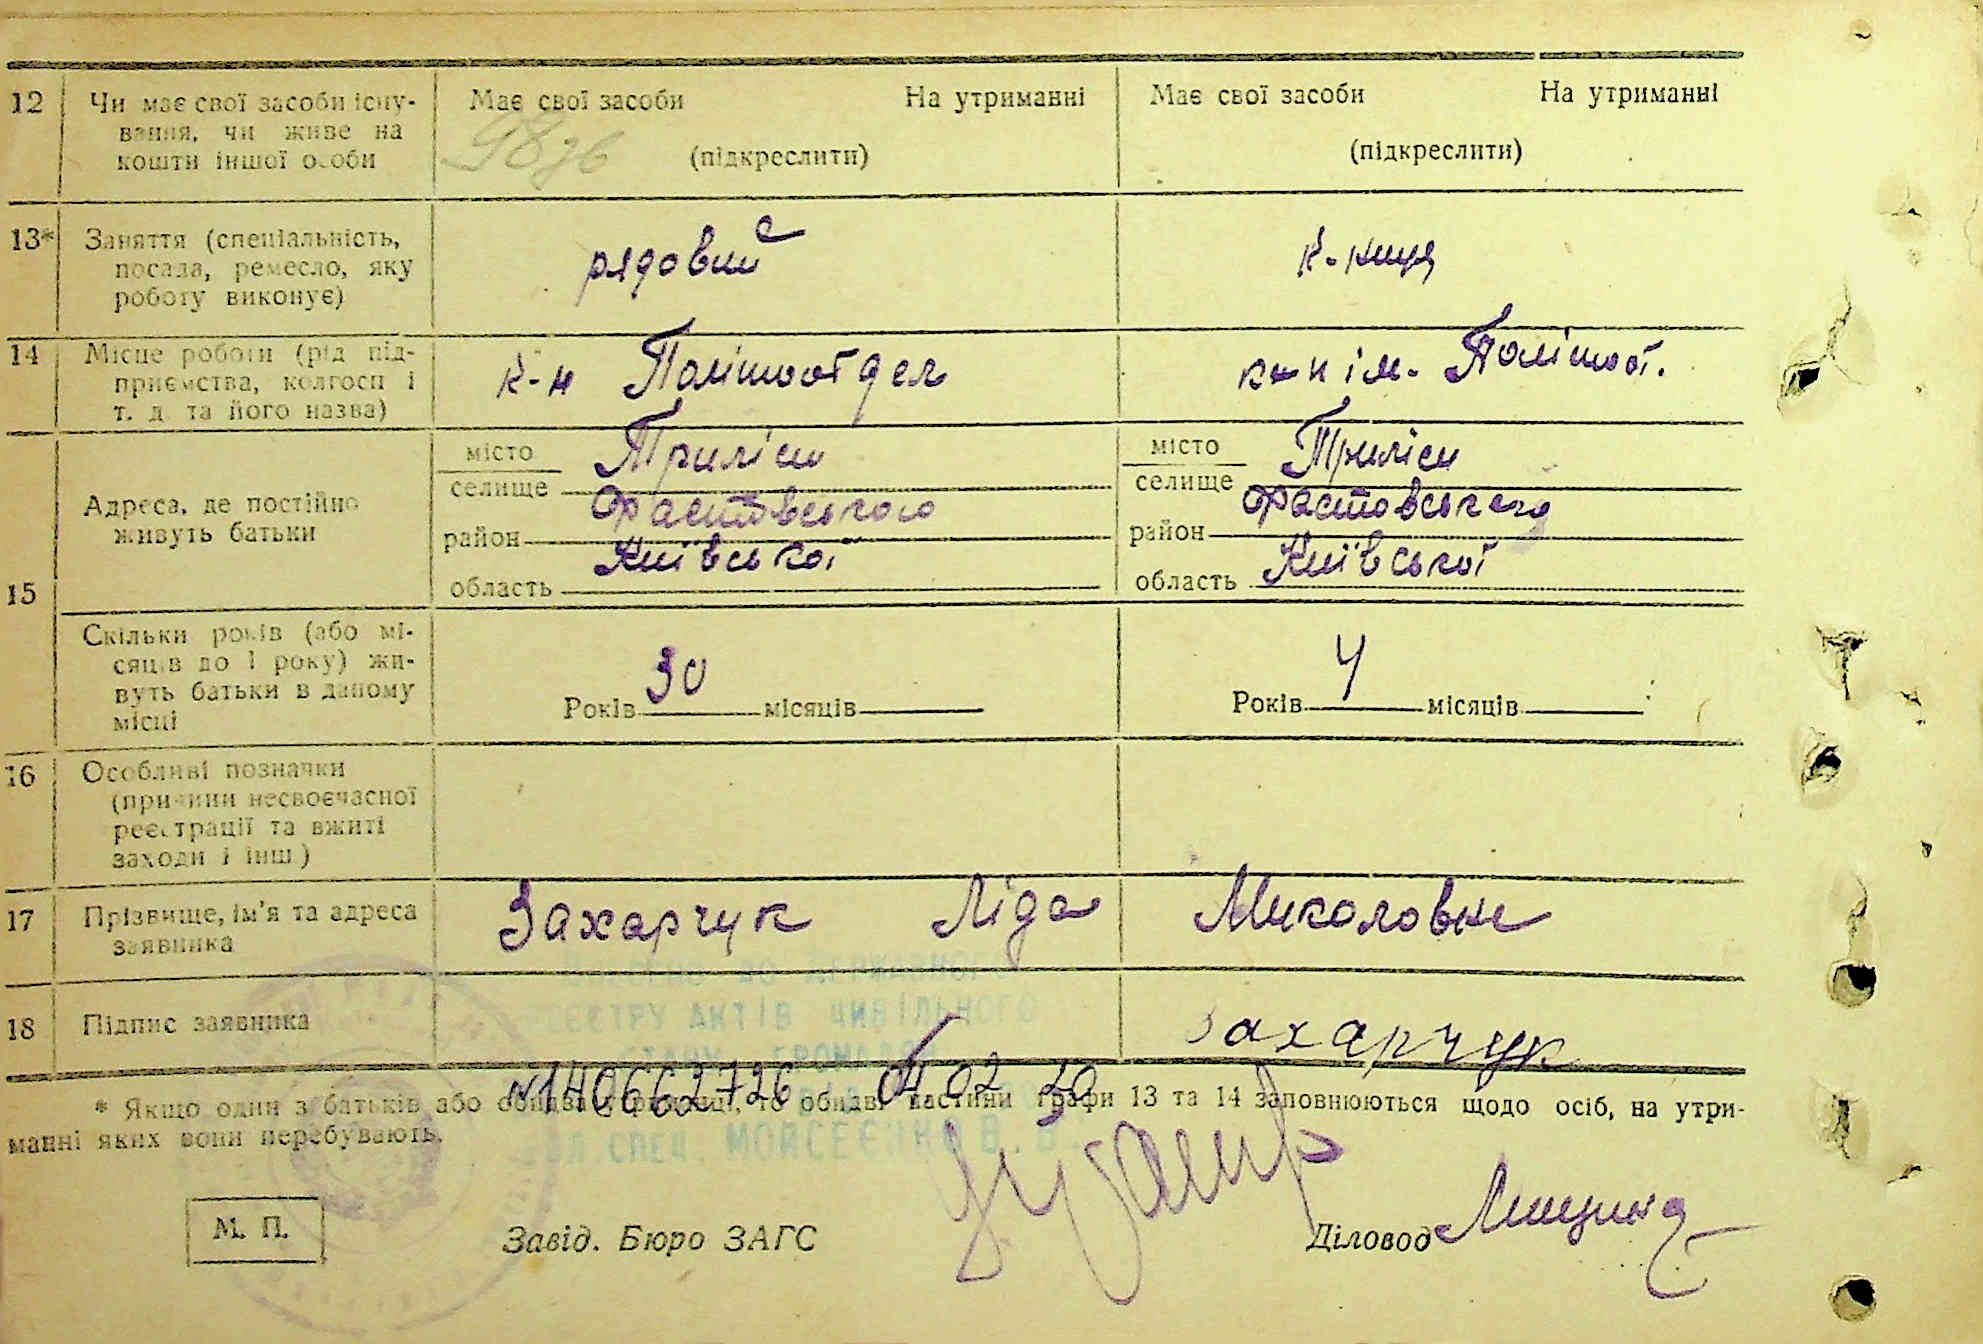 12 Чи має свої засоби існу-
вання, чи живе на
кошти іншої особи
Має свої засоби На утриманні
(підкреслити)
Має свої засоби На утриманні
(підкреслити)
13* Заняття (спеціальність,
посада, ремесло, яку
роботу виконує)
рядовий
к-ниця
14 Місце роботи (рід під-
приємства, колгосп і
т. д. та його назва)
к-н Політотдел
к-н ім. Політот.
15 Адреса, де постійно
живуть батьки
місто
селище Триліси
район Фастовського
область Київської
місто
селище Триліси
район Фастовського
область Київської
Скільки років (або мі-
сяців до 1 року) жи-
вуть батьки в даному
місці
Років 30 місяців
Років 4 місяців
16 Особливі позначки
(причини несвоєчасної
реєстрації та вжиті
заходи і інш.)
17 Прізвище, ім'я та адреса
заявника
Захарчук Ліда Миколовне
18 Підпис заявника
Захарчук
ВНЕСЕНО ДО ДЕРЖАВНОГО
РЕЄСТРУ АКТІВ ЦИВІЛЬНОГО
СТАНУ ГРОМАДЯН
№140662726 04.02
СПЕЦ. МОЙСЕЄНКО В. В.
* Якщо один з батьків або обидва утриманці, то обидві частини графи 13 та 14 заповнюються щодо осіб, на утри-
манні яких вони перебувають.
М. П.
Завід. Бюро ЗАГС
Діловод